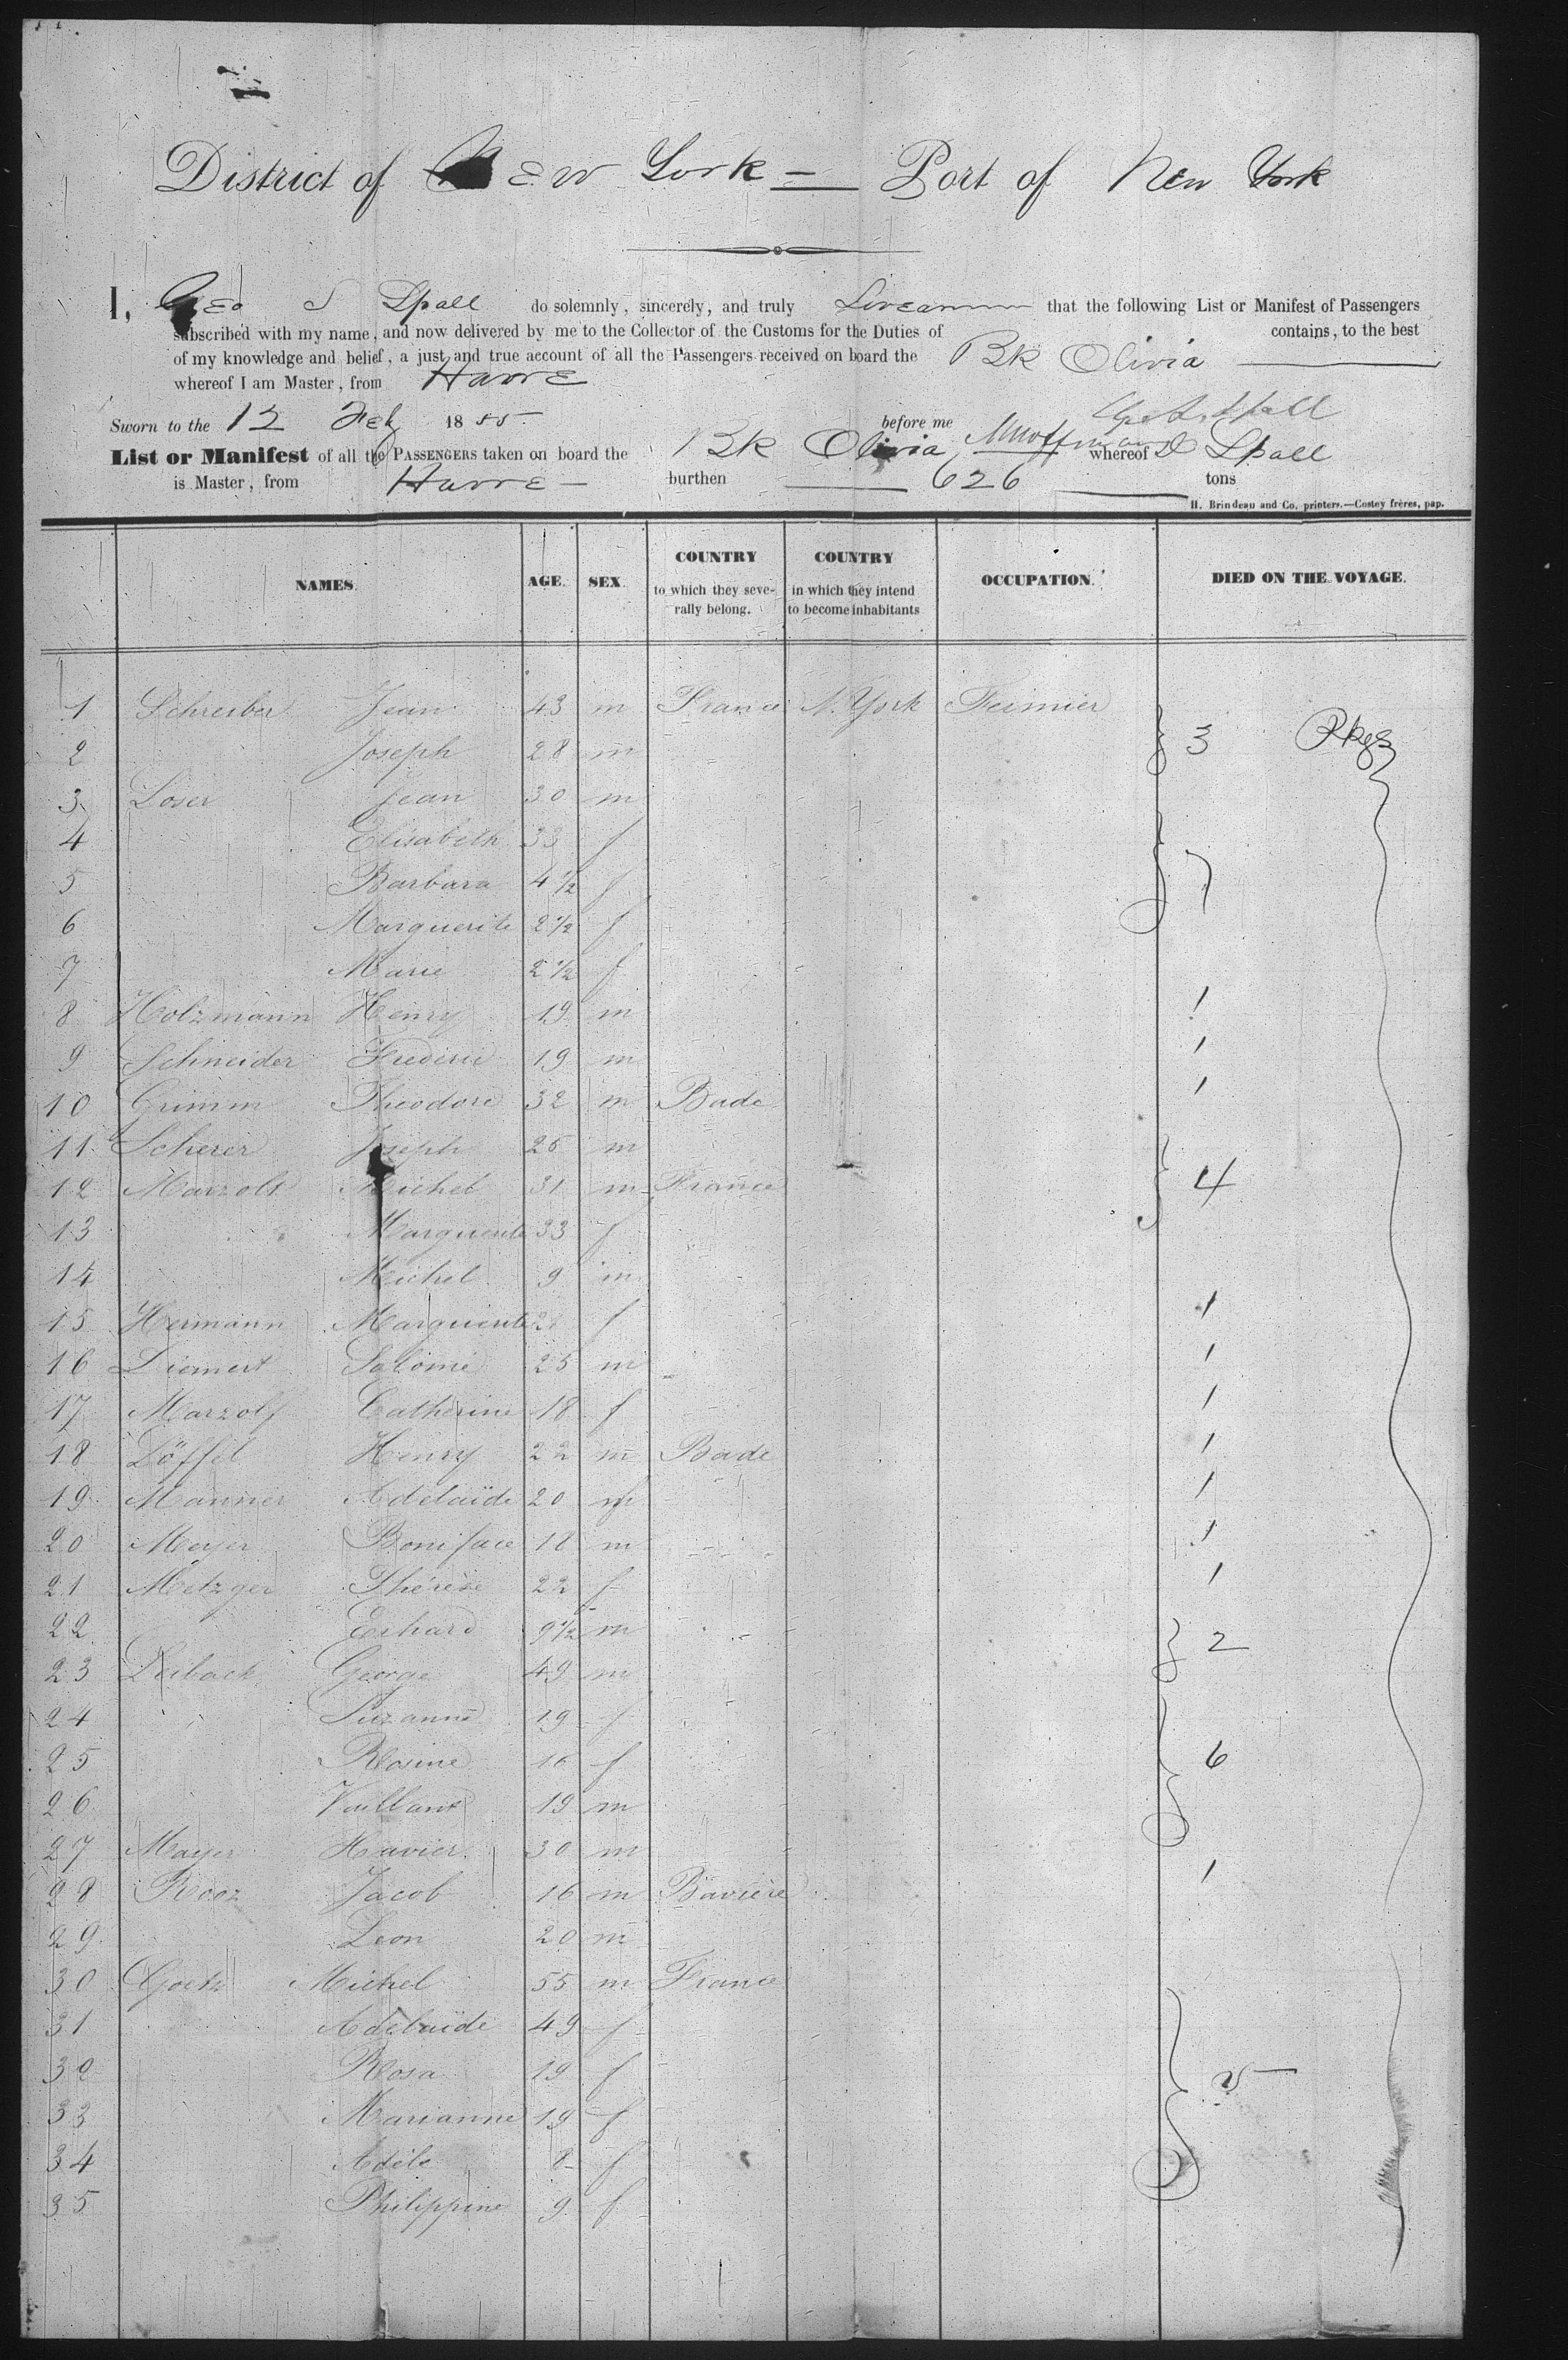 District of New York — Port of New York
I, Geo S Spall do solemnly, sincerely, and truly that the following List or Manifest of Passengers
subscribed with my name, and now delivered by me to the Collector of the Customs for the Duties of contains, to the best
of my knowledge and belief, a just and true account of all the Passengers received on board the Bk Olivia
whereof I am Master, from Havre
Sworn to the 12 Feb 1855 before me
List or Manifest of all the PASSENGERS taken on board the Bk Olivia whereof Spall
is Master, from Havre — burthen 626 tons
H. Brindeau and Co, printers.—Costey frères, pap.
NAMES. AGE. SEX. COUNTRY to which they severally belong. COUNTRY in which they intend to become inhabitants OCCUPATION. DIED ON THE VOYAGE.
1 Schreiber Jean 43 m France N. York Fermier
2 Joseph 28 m } 3 Pkgs
3 Loser Jean 30 m
4 Elisabeth 33 f
5 Barbara 4 1/2 f } 7
6 Marguerite 2 1/2 f
7 Marie 2 1/2 f
8 Holzmann Henry 19 m 1
9 Schneider Frederic 19 m 1
10 Grimm Theodore 32 m Bade 1
11 Scherer Joseph 25 m
12 Marzolf Michel 31 m France } 4
13 Marguerite 33 f
14 Michel 9 m
15 Hermann Marguerite f 1
16 Diemert Salomé 25 m 1
17 Marzolf Catherine 18 f 1
18 Löffel Henry 22 m Bade 1
19 Manner Adelaïde 20 f 1
20 Meyer Boniface 18 m 1
21 Metzger Thérèse 22 f 1
22 Erhard 9 1/2 m
23 George 49 m } 2
24 Suzanne 19 f
25 Rosine f } 6
26 Vaillant 19 m
27 Mayer Xavier 30 m
28 Rooz Jacob 16 m Bavière 1
29 Leon 20 m
30 Goetz Michel 55 m France
31 Adelaïde 49 f
32 Rosa 19 f } 5
33 Marianne 19 f
34 Adèle 8 f
35 Philippine 9 f